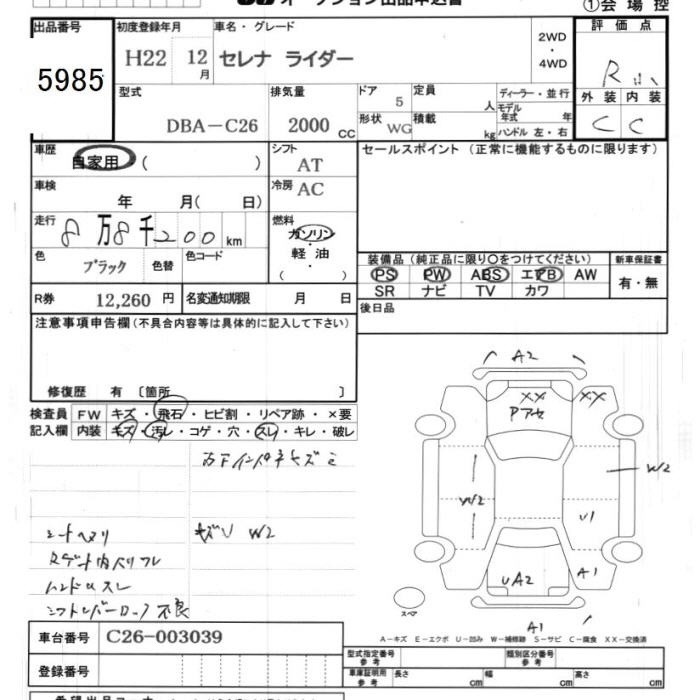 ①会場控
出品番号
5985
初度登録年月
H22 12月
車名・グレード
セレナ ライダー
2WD
・
4WD
評価点
R
外装 内装
C C
型式
DBA-C26
排気量
2000 CC
ドア 5
形状 WG
定員 人
積載 kg
ディーラー・並行
モデル年式 年
ハンドル 左・右
車歴
自家用 ( )
シフト
AT
車検
年 月( 日)
冷房
AC
走行
8万8千200km
燃料
ガソリン
・
軽油
( )
色
ブラック
色替
色コード
R券 12,260 円 名変通知期限 月 日
セールスポイント(正常に機能するものに限ります)
装備品(純正品に限り〇をつけてください)
PS PW ABS エアB AW
SR ナビ TV カワ
新車保証書
有・無
後日品
注意事項申告欄(不具合内容等は具体的に記入して下さい)
修復歴 有〔箇所 〕
検査員 FW キズ・飛石・ヒビ割・リペア跡・×要
記入欄 内装 キズ・汚レ・コゲ・穴・スレ・キレ・破レ
シートヘタリ
キズU W2
ハンドルスレ
シフトレバーロック不良
A2
XX XX
Pアセ
W2
W2
U1
A1
UA2
スペア
A1
A-キズ E-エクボ U-凹み W-補修跡 S-サビ C-腐食 XX-交換済
車台番号 C26-003039
登録番号
型式指定番号 参考
類別区分番号 参考
車庫証明用 参考 長さ cm 幅 cm 高さ cm